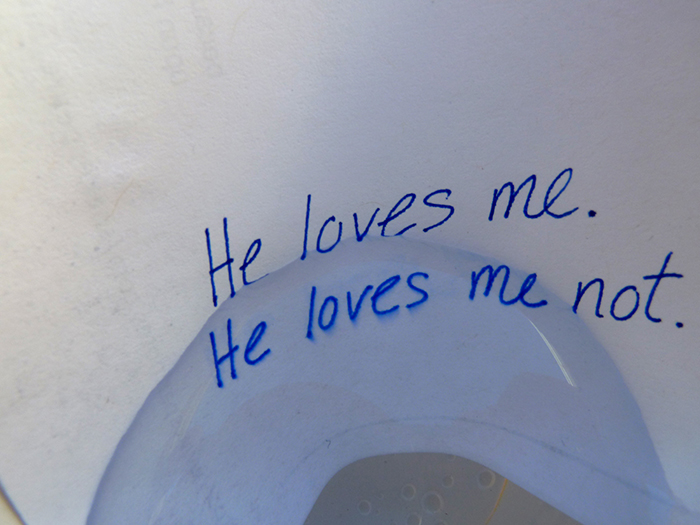 He loves me.
He loves me not.